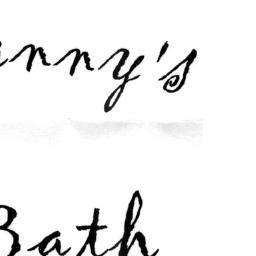 nny's
Bath